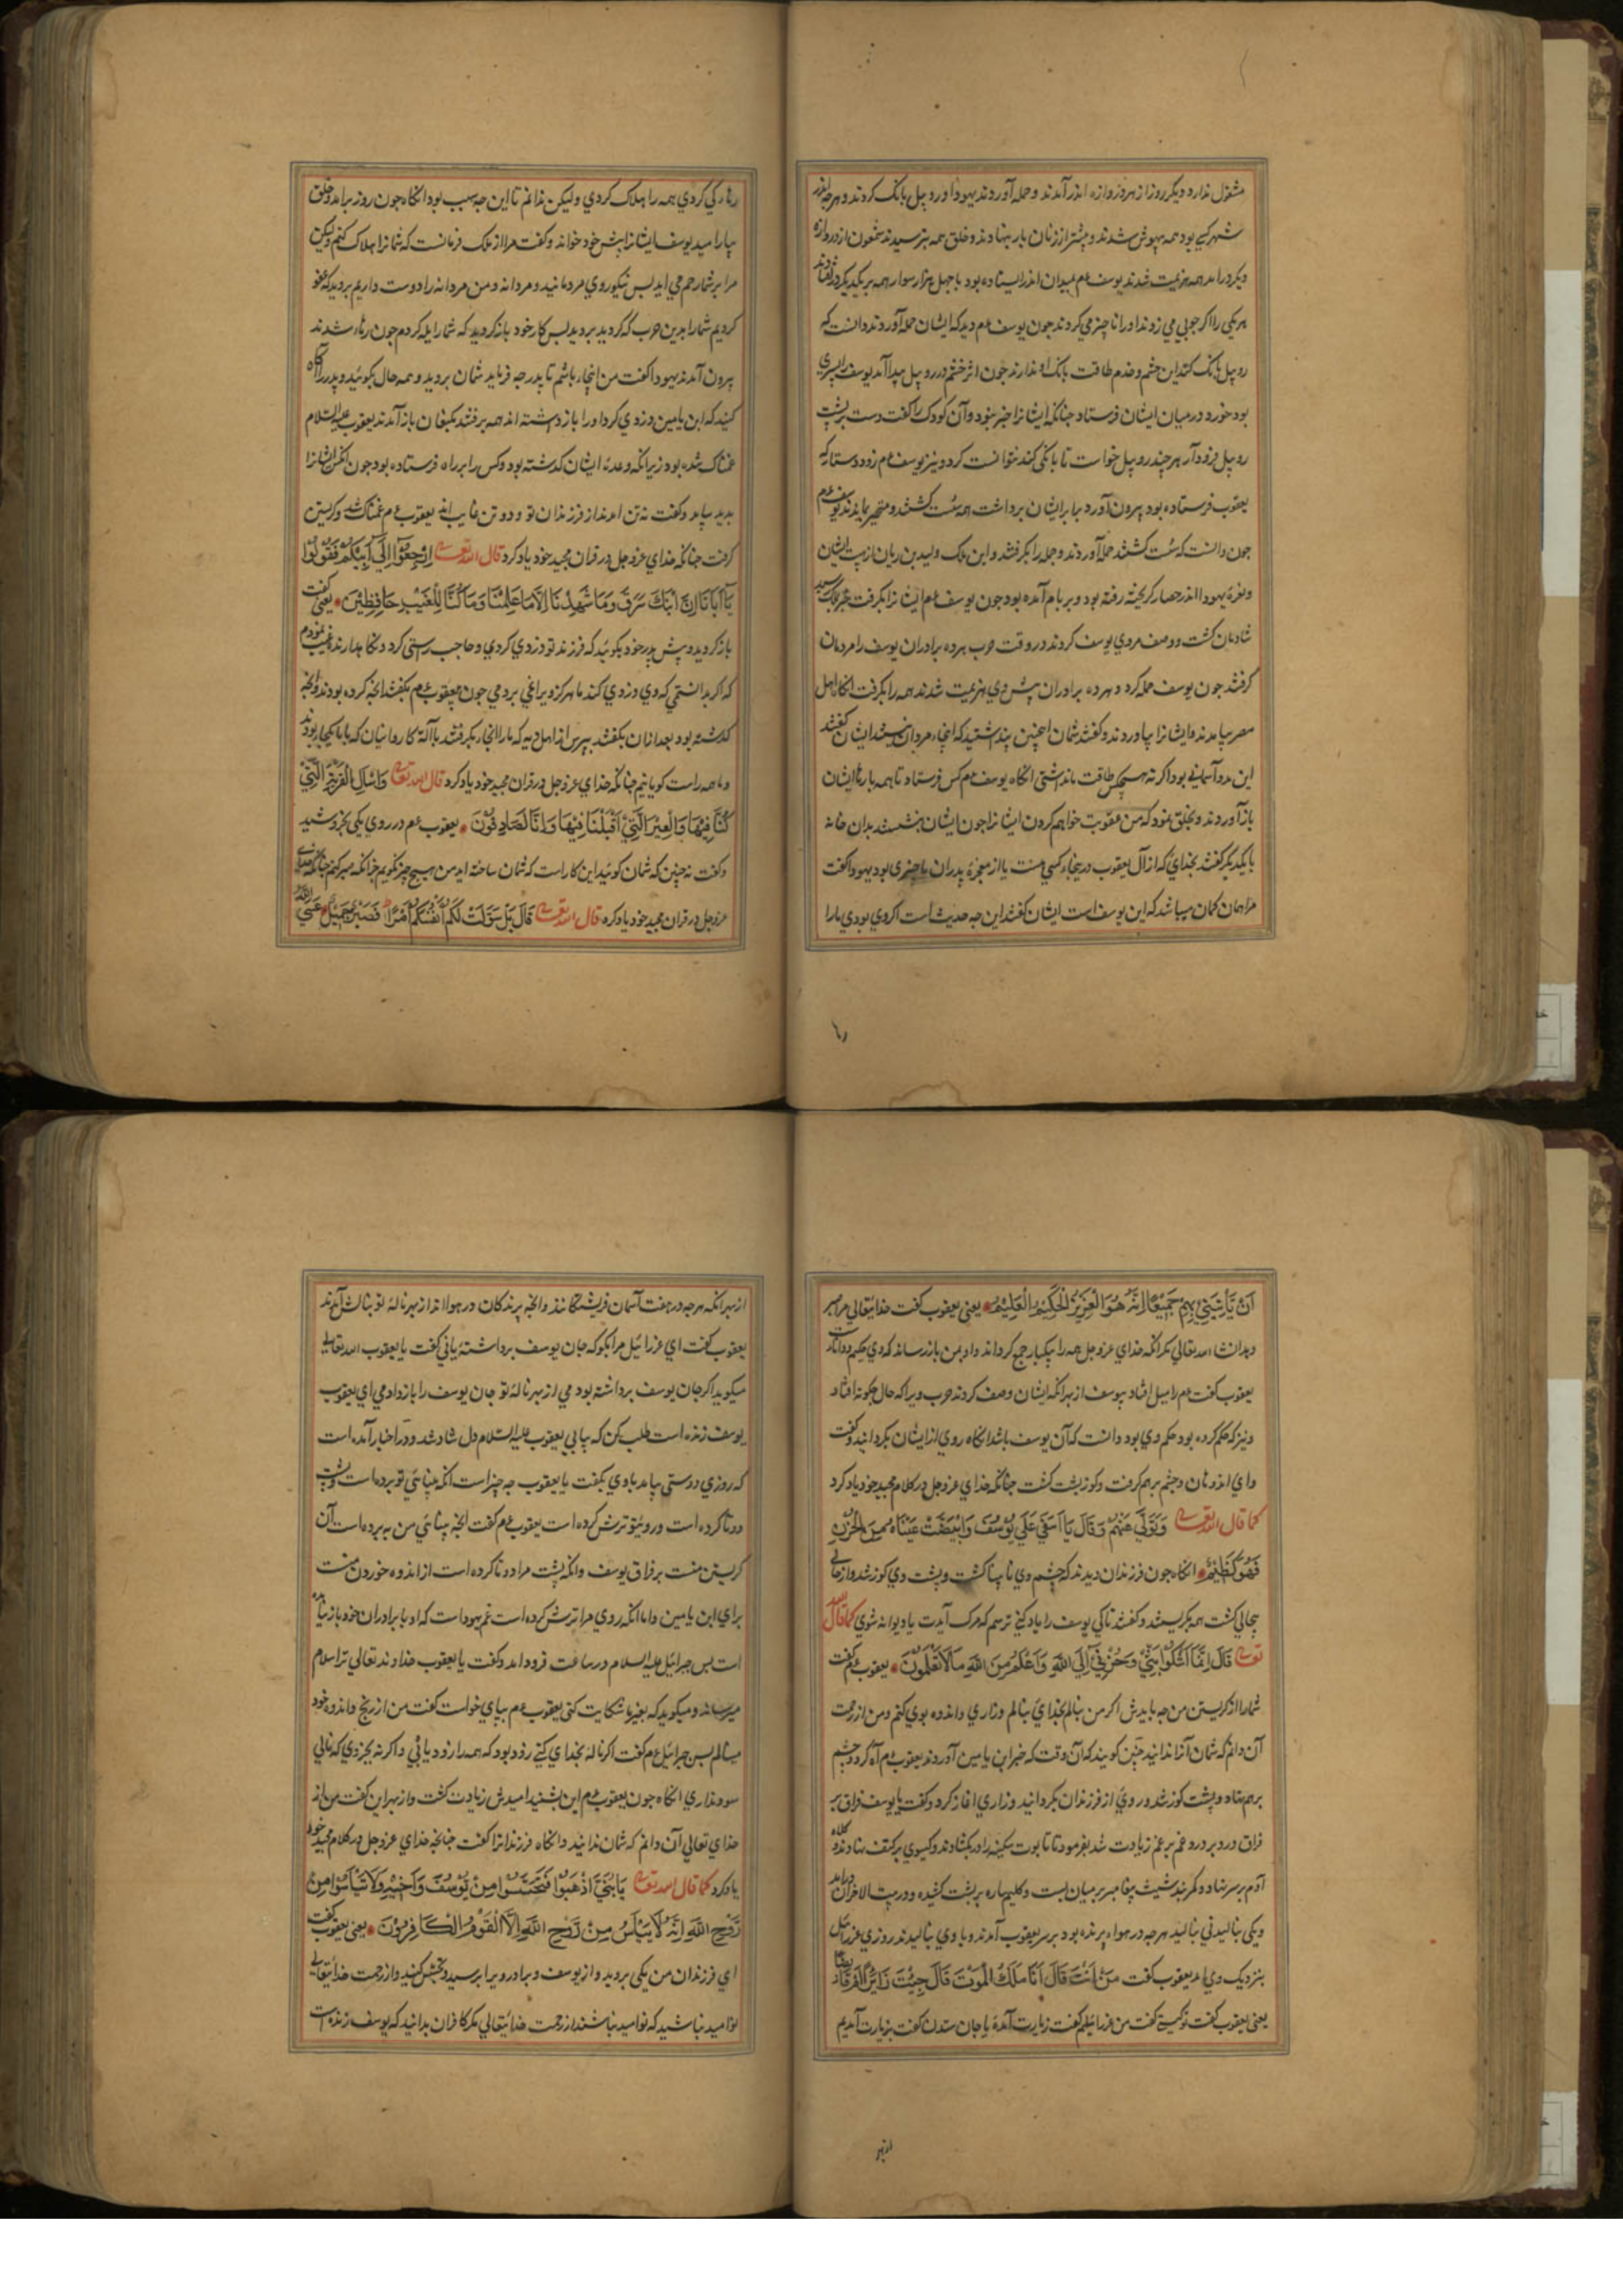 مشغول ندارد دیکر روز از هر دروازه اندر آمدند و حمله آوردند یهودا و روبیل بانک کردند و هرچه اندر
شهر کسی بود همه بیهوش شدند و بیشتر از زنان بار بنهادند و خلق همه بترسیدند شمعون از دروازه
دیکر درامد همه هزیمت شدند یوسف عم بمیدان اندر ایستاده بود با چهل هزار سوار همه بر یکدیکر
هر یکی را اکر جوبی می زدند اورا ناچیز می کردند جون یوسف عم دید که ایشان حمله آوردند دانست که
روبیل بانک کند این حشم و خدم طاقت بانک او ندارند جون اثر خشم در روبیل پیدا آمد یوسف را پسری
بود خورد در میان ایشان فرستاد جنانکه ایشانرا خبر نبود و آن کودک را کفت دست بر پشت
روبیل فرود آر هر چند روبیل خواست تا بانکی کند نتوانست کرد و نیز یوسف عم زود دستار که
یعقوب فرستاده بود بیرون آورد برابر ایشان برداشت همه سست کشتند و متحیر بماندند یوسف عم
جون دانست که سست کشتند حمله آوردند و جمله را بکرفتند و این ملک ولید بن ریان از بیت ایشان
و نعره یهودا اندر حصار کریخته رفته بود و بر بام آمده بود جون یوسف عم ایشانرا بکرفت خبر بملک رسید
شادمان کشت و وصف مردی یوسف کردند در وقت حرب هر ده برادران یوسف را مردمان
کرفتند جون یوسف حمله کرد و هر ده برادران پیش وی هزیمت شدند همه را بکرفت انکاه اهل
مصر بیامدند و ایشانرا بیاوردند و کفتند شمان اینچنین پنداشتید که اینجا مردان نیستند ایشان کفتند
این مدد آسمانی بود اکر نه هیچکس طاقت ما نداشتی انکاه یوسف عم کس فرستاد تا همه بارهاء ایشان
باز آوردند و بخلق نمود که من عقوبت خواهم کردن ایشانرا جون ایشان بنشستند بدان خانه
با یکدیکر کفتند بخدای که از آل یعقوب درینجاء کسی هست یا از معجزهٔ پدران ما چیزی بود یهودا کفت
مرا همان کمان میباشد که این یوسف است ایشان کفتند این جه حدیث است اکر وی بودی مارا
رها
رهاء کی کردی همه را هلاک کردی ولیکن ندانم تا این جه سبب بود انکاه جون روز برامد و خلق
بیارامید یوسف ایشانرا پیش خود خواند و کفت مرا از ملک فرمانست که شمانرا هلاک کنم ولیکن
مرا بر شما رحم می اید بس نیکوروی مردمانید و مردانه و من مردانه را دوست داریم بروید که عفو
کردیم شمارا بدین حرب که کردید بروید بس کار خود باز کردید که شمارا یله کردم جون رهاء شدند
بیرون آمدند یهودا کفت من اینجاء باشم تا پدر جه فرماید شمان بروید و همه حال بکوئید و پدر را آکاه
کنید که ابن یامین دزدی کرد اورا باز داشته اند همه برفتند بکنعان باز آمدند یعقوب علیه السلام
غمناک شده بود زیرانکه وعدهٔ ایشان کذشته بود و کس را بر راه فرستاده بود جون انکس ایشانرا
بدید بیامد و کفت نه تن امدند از فرزندان تو و دو تن غایب اند یعقوب عم غمناک شد و کریستن
کرفت جنانکه خدای عزوجل در قران مجید خود یاد کرد قال الله تعالی اِرْجِعُوْا اِلَی اَبِیْکُمْ فَقُوْلُوْا
یَا اَبَانَا اِنَّ ابْنَكَ سَرَقَ وَمَا شَهِدْنَا اِلَّا بِمَا عَلِمْنَا وَمَا کُنَّا لِلْغَیْبِ حَافِظِیْنَ یعنی کفت
باز کردید و پیش پدر خود بکوئید که فرزند تو دزدی کردی و حاجب راستی کرد و نکاه ندارند
که اکر بدانستمی که وی دزدی کند ما هرکز ویرا نمی بردمی جون یعقوب عم بکفتند انچه کرده بودند و انچه
کذشته بود بعد ازان بکفتند بپرس از اهل دیه که مارا انجاء بکرفتند با آنکه کاروانیان که با ما یکجا بودند
و ما همه راست کویانیم جنانکه خدای عزوجل در قران مجید خود یاد کرد قال الله تعالی وَاسْاَلِ الْقَرْیَةَ الَّتِیْ
کُنَّا فِیْهَا وَالْعِیْرَ الَّتِیْ اَقْبَلْنَا فِیْهَا وَاِنَّا لَصَادِقُوْنَ یعقوب عم در روی یکی بخروشید
و کفت نه چنین که شمان کوئید این کار است که شمان ساخته اید من هیچ چیز نکویم جز انکه صبر کنم جنانکه خدای
عزوجل در قران مجید خود یاد کرد قال الله تعالی قَالَ بَلْ سَوَّلَتْ لَکُمْ اَنْفُسُکُمْ اَمْرًا فَصَبْرٌ جَمِیْلٌ عَسَی اللهُ
اَنْ یَأْتِیَنِیْ بِهِمْ جَمِیْعًا اِنَّهُ هُوَ الْعَزِیْزُ الْحَکِیْمُ الْعَلِیْمُ یعنی یعقوب کفت خدایتعالی مرا صبر
دهد ان شا الله تعالی مکر انکه خدای عزوجل همه را بیکبار جمع کرداند و او بمن باز رساند که وی حکیم و داناست
یعقوب کفت عم را میل افتاد بیوسف از بهر انکه ایشان وصف کردند حرب ویرا که حال جکونه افتاد
و نیز که حکم کرده بود حکم وی بود دانست که آن یوسف باشد انکاه روی از ایشان بکردانید و کفت
وای اندوهان و جشم بر هم کرفت و کوز پشت کشت جنانکه خدای عزوجل در کلام مجید خود یاد کرد
کما قال الله تعالی وَتَوَلَّی عَنْهُمْ وَقَالَ یَا اَسَفَی عَلَی یُوْسُفَ وَابْیَضَّتْ عَیْنَاهُ مِنَ الْحُزْنِ
فَهُوَ کَظِیْمٌ انکاه جون فرزندان دیدند که چشم وی نابینا کشت و پشت وی کوز شد و از حالی
بحالی کشت همه بکریستند و کفتند تا کی یوسف را یاد کنی ترسم که مرک آیدت یا دیوانه شوی کما قال الله
تعالی قَالَ اِنَّمَا اَشْکُوْا بَثِّیْ وَحُزْنِیْ اِلَی اللهِ وَاَعْلَمُ مِنَ اللهِ مَا لَا تَعْلَمُوْنَ یعقوب عم کفت
شمارا از کریستن من جه بایدش اکر من بنالم بخدای بنالم و زاری و اندوه بوی کنم و من از رحمت
آن دانم که شمان آنرا ندانید چنین کویند که آن وقت که خبر ابن یامین آوردند یعقوب عم آه کرد و جشم
بر هم نهاد و پشت کوز شد و روی از فرزندان بکردانید و زاری اغاز کرد و کفت یا یوسف فراق بر
فراق و درد بر درد و غم بر غم زیادت شد بفرمود تا تابوت سکینه را در بکشادند و کیسوی بر کتف نهادند و کلاه
آدم بر سر نهاد و کمربند شیث پیغامبر بر میان بست و کلیم پاره بر پشت کشیده و در بیت الاحزان درامد
و یکی بنالیدنی بنالید هرچه در هواء پرنده بود بر سر یعقوب آمدند و با وی بنالیدند روزی عزرائیل
بنزدیک وی امد یعقوب کفت مَنْ اَنْتَ قَالَ اَنَا مَلَكُ الْمَوْتِ قَالَ جِئْتَ زَایِرًا اَمْ قَابِضًا
یعنی یعقوب کفت تو کیستی کفت من عزرائیلم کفت زیارت آمدهٔ یا جان ستدن کفت بزیارت آمدیم
از بهر
از بهر انکه هرچه در هفت آسمان فریشتکانند و انچه پرندکان در هوا اند از بهر نالهٔ تو بنالش آمدند
یعقوب کفت ای عزرائیل مرا بکو که جان یوسف برداشتهٔ یا نی کفت یا یعقوب الله تعالی
میکوید اکر جان یوسف برداشته بودمی از بهر نالهٔ تو جان یوسف را باز دادمی ای یعقوب
یوسف زنده است طلب کن که بیابی یعقوب علیه السلام دل شاد شد و در اخبار آمده است
که روزی دوستی بیامد با وی بکفت یا یعقوب جه چیز است انکه بینائی تو برده است و پشت
دوتا کرده است و رویتو ترش کرده است یعقوب عم کفت انچه بینائی من به برده است آن
کریستن منست بر فراق یوسف و انکه پشت مرا دوتا کرده است از اندوه خوردن منست
برای ابن یامین و اما انکه روی مرا ترش کرده است غم یهوداست که او با برادران خود باز نیامده
است بس جبرائیل علیه السلام در ساعت فرود امد و کفت یا یعقوب خداوند تعالی ترا سلام
میرساند و میکوید که بغیر ما شکایت کنی یعقوب عم بپای خواست کفت من از رنج و اندوه خود
مینالم بس جبرائیل عم کفت اکر ناله بخدای کنی زود بود که همه را زود یابی و اکر نه بجز وی که نالی
سود نداری انکاه جون یعقوب عم این بشنید امیدش زیادت کشت و از بهر این کفت من از
خدای تعالی آن دانم که شمان ندانید و انکاه فرزندانرا کفت جنانچه خدای عزوجل در کلام مجید خود
یاد کرد کما قال الله تعالی یَا بَنِیَّ اذْهَبُوْا فَتَحَسَّسُوْا مِنْ یُوْسُفَ وَاَخِیْهِ وَلَا تَیْأَسُوْا مِنْ
رَوْحِ اللهِ اِنَّهُ لَا یَیْأَسُ مِنْ رَوْحِ اللهِ اِلَّا الْقَوْمُ الْکَافِرُوْنَ یعنی یعقوب کفت
ای فرزندان من یکی بروید و از یوسف و برادر ویرا برسید و تجسس کنید و از رحمت خدایتعالی
نوامید نباشید که نوامید نباشند از رحمت خدایتعالی مکر کافران بدانید که یوسف زنده است